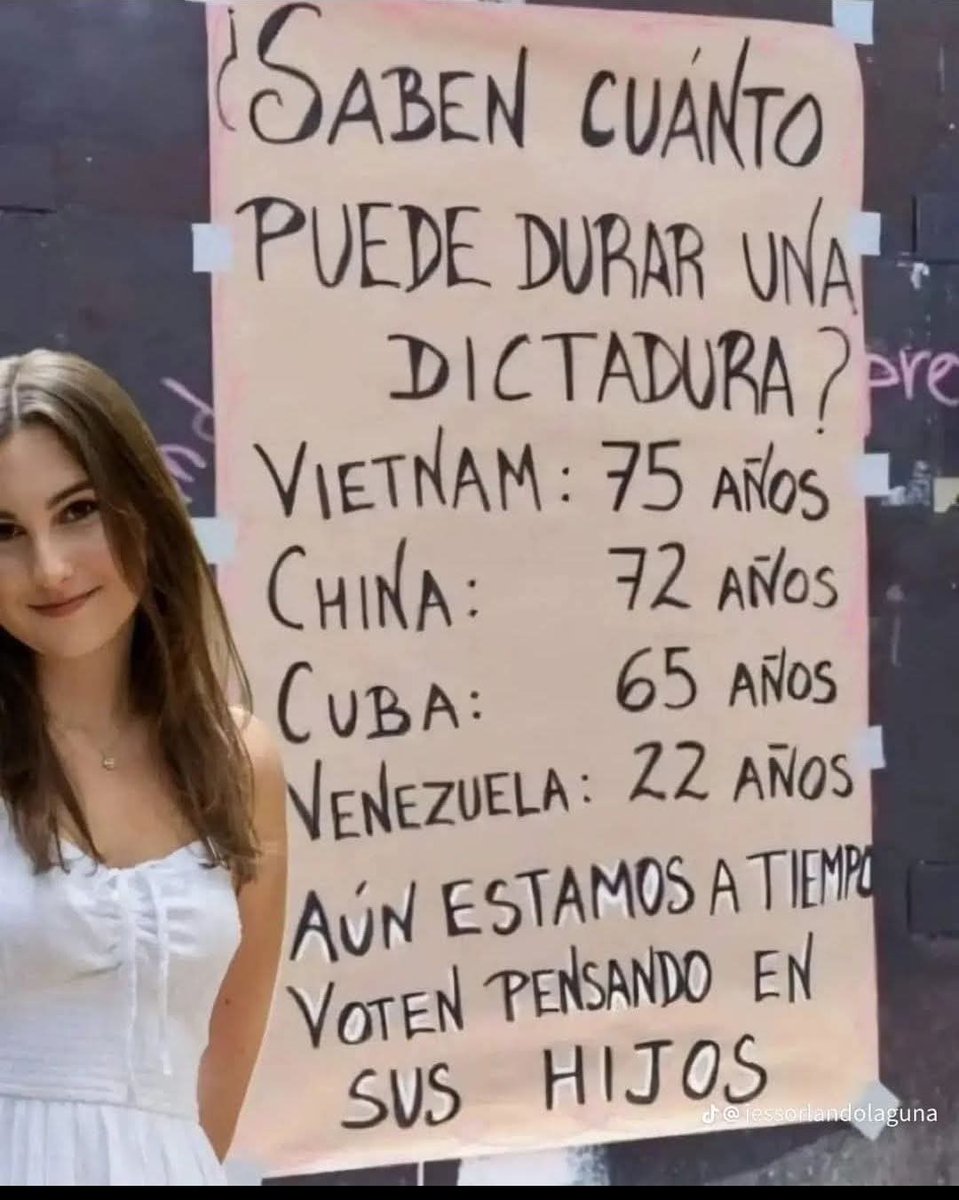 ¿SABEN CUÁNTO
PUEDE DURAR UNA
DICTADURA?
VIETNAM: 75 AÑOS
CHINA: 72 AÑOS
CUBA: 65 AÑOS
VENEZUELA: 22 AÑOS
AÚN ESTAMOS A TIEMPO
VOTEN PENSANDO EN
SUS HIJOS
pre
@jessorlandolaguna